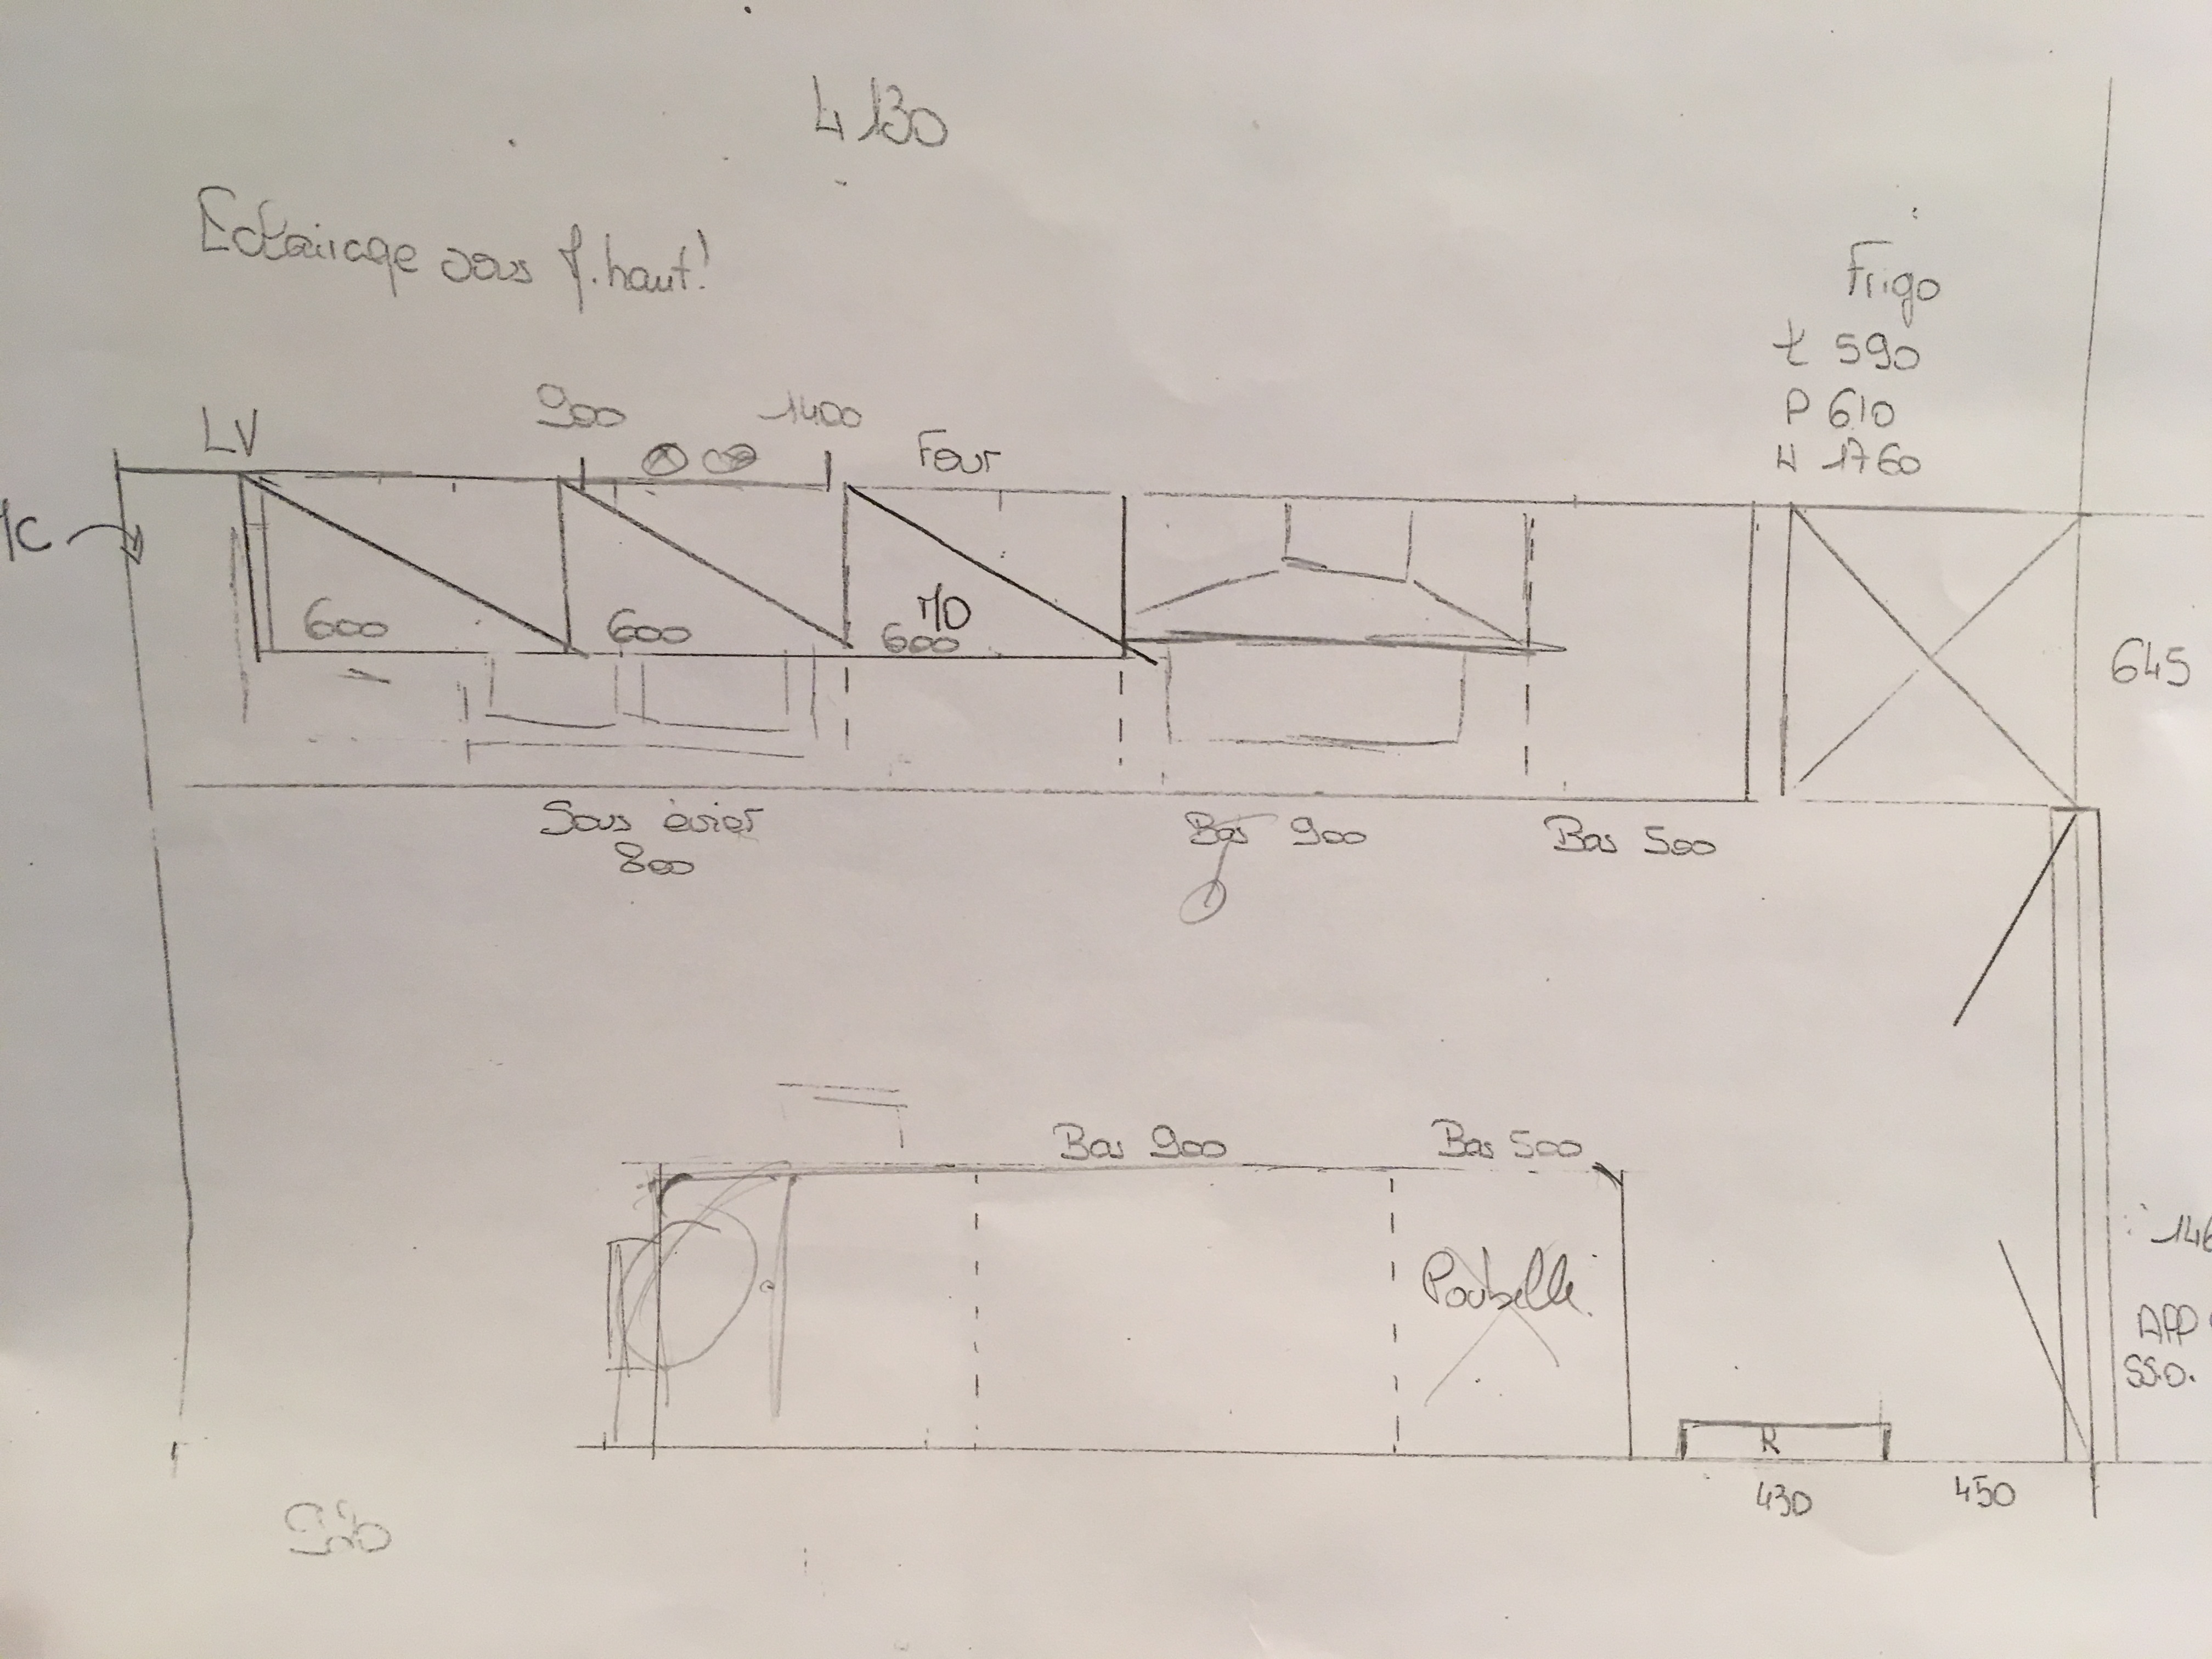 4130
Eclairage sous f.haut!
Frigo
L 590
P 610
H 1760
900
1400
LV
Four
1C
600
600
MO
600
645
Sous évier
800
Bas 900
Bas 500
Bas 900
Bas 500
Poubelle
146
APP
SS.O.
R
430
450